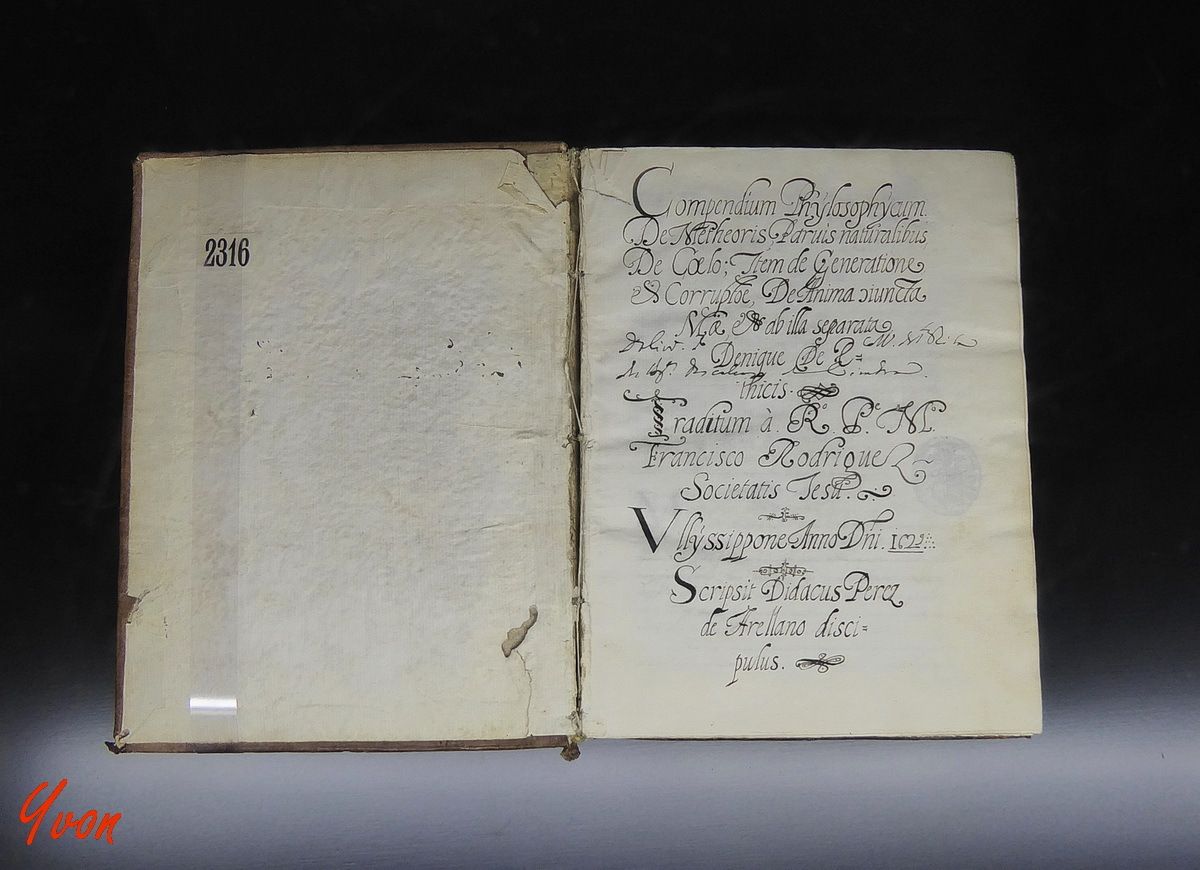 2316
Compendium Phÿlosophÿcum.
De Metheoris, Paruis naturalibus,
De Cœlo; Item de Generatione
& Corruptõe, De Anima ɔiuncta
& ab illa separata
Denique De R=
thicis.
Traditum à. Rº. Pº. Mº.
Francisco Rodriguez
Societatis Iesu.
Vllÿssippone Anno Dñi.
Scripsit Didacus Perez
de Arellano disci=
pulus.
Yvon